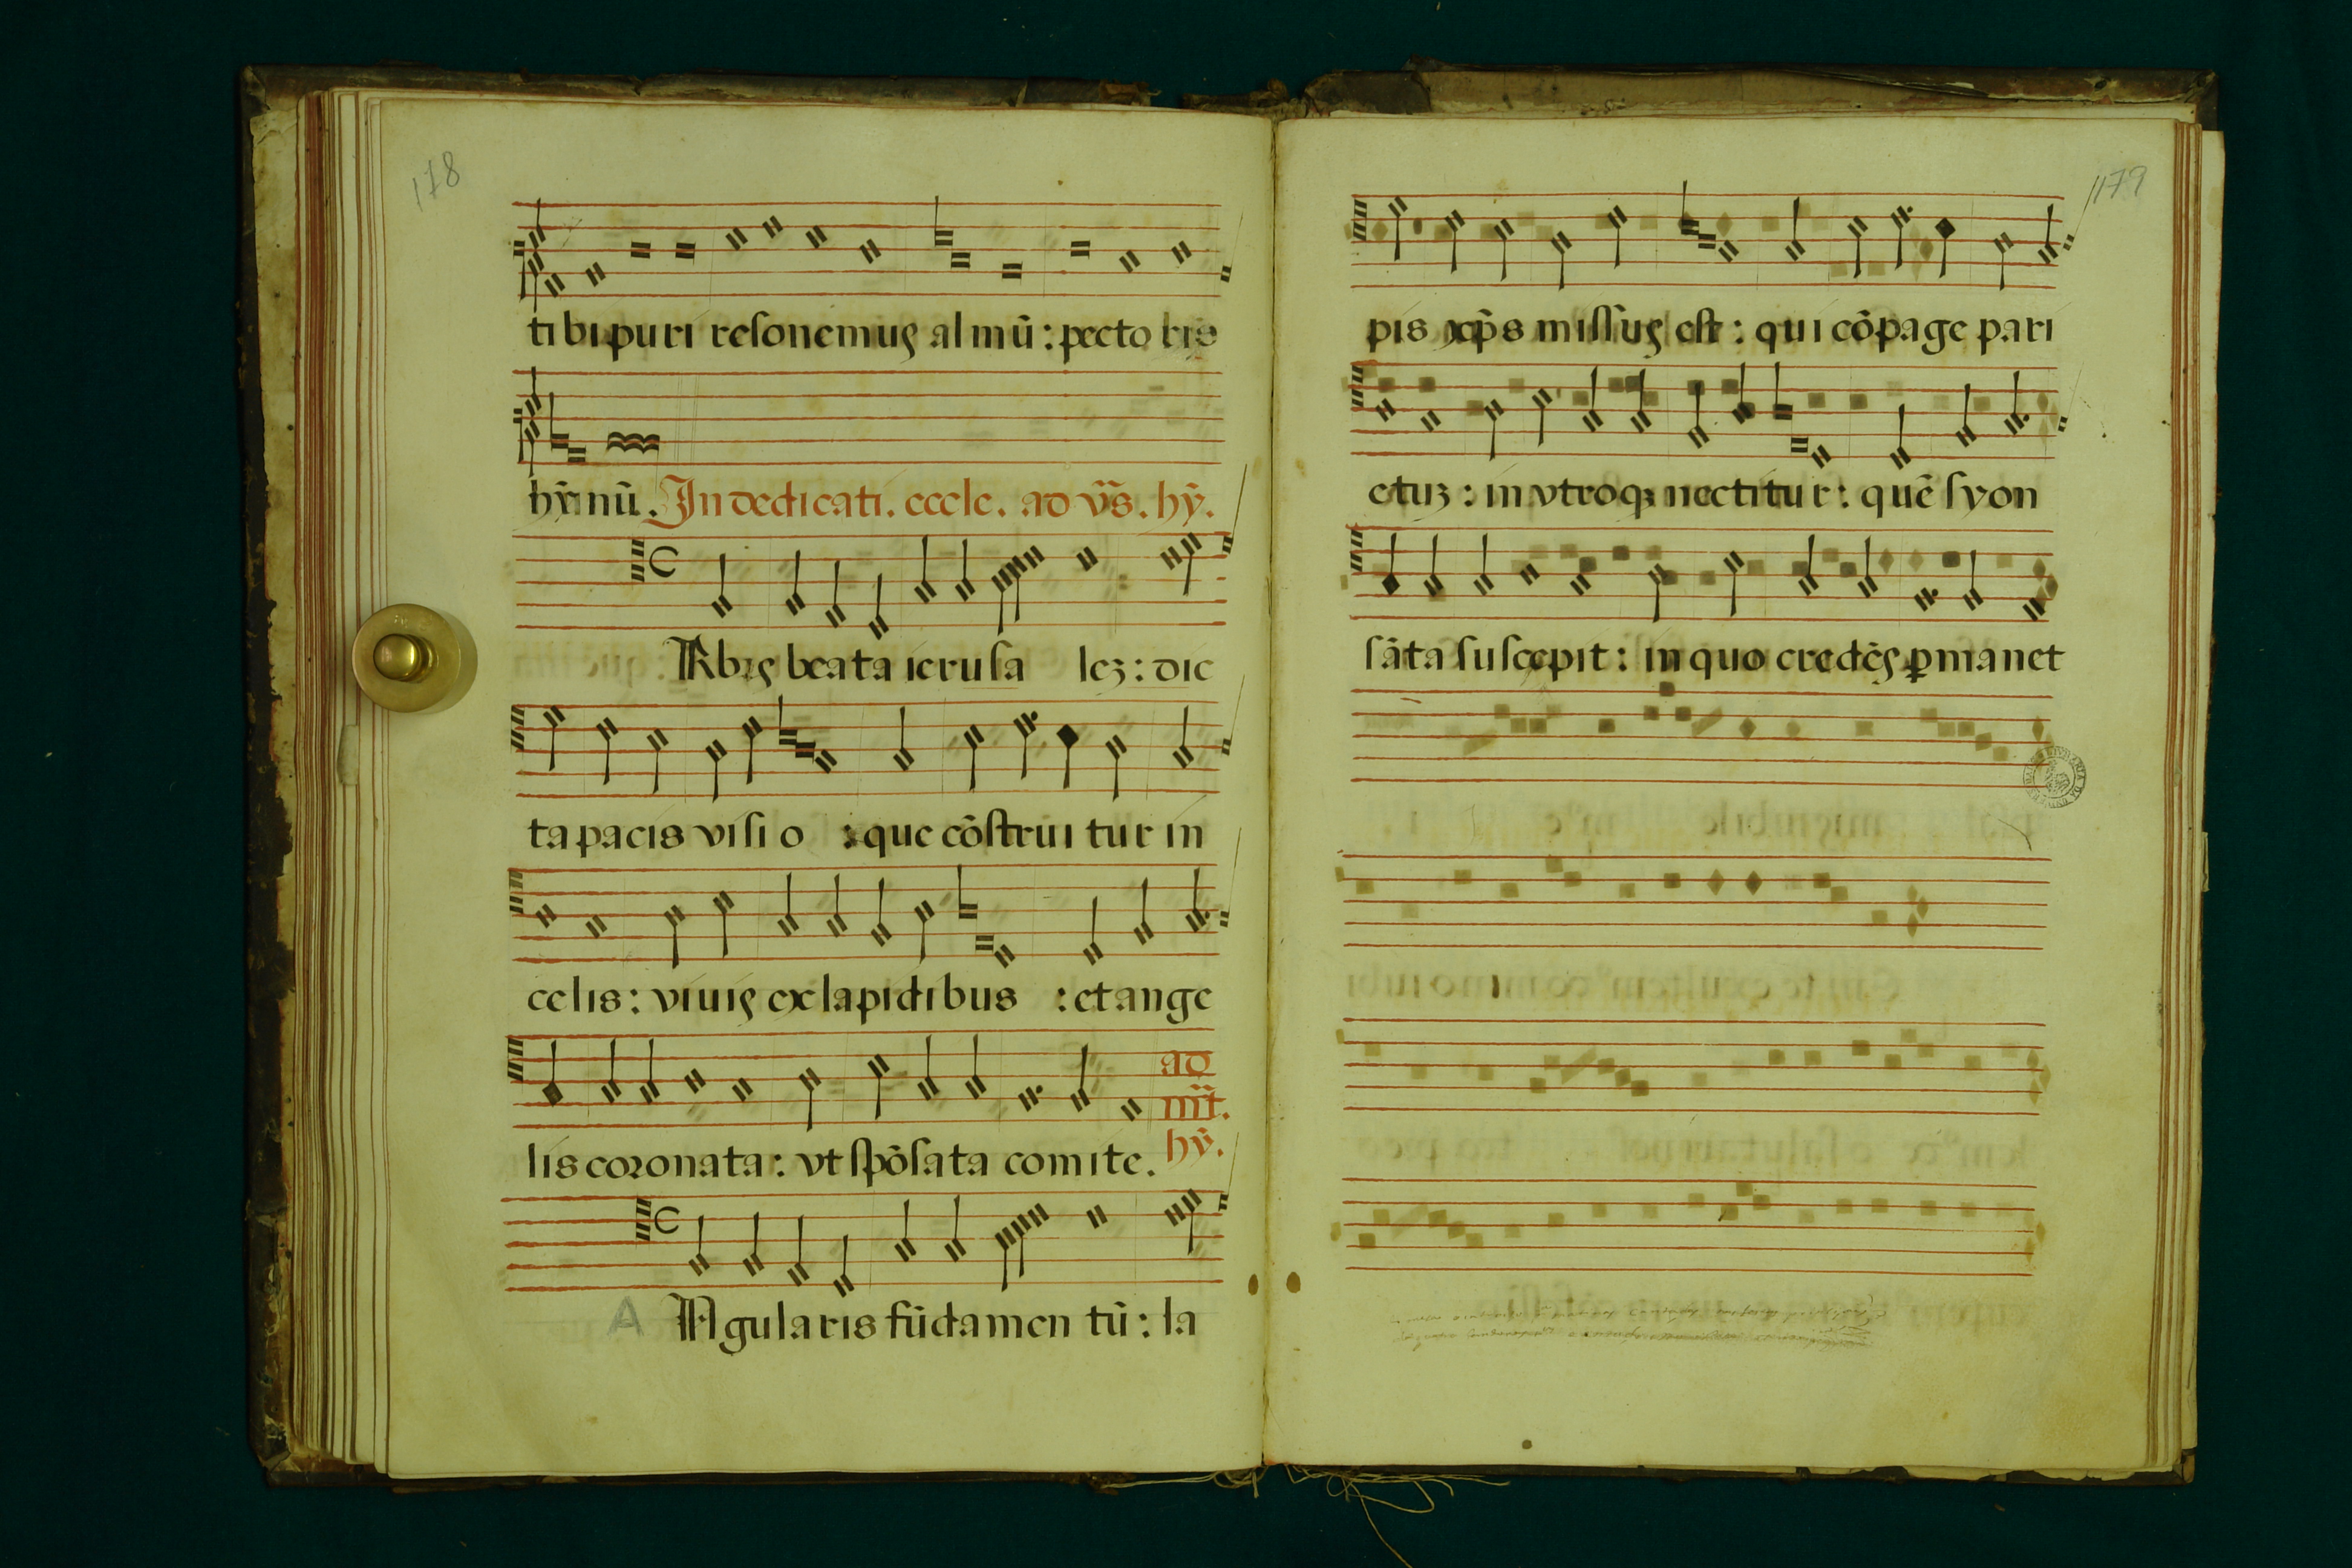 178
ti bi puri resonemus al mū : pecto ris
hȳ nū . In dedicati . eccle . ad vr̄s . hȳ .
Vrbis beata ierusa leȝ : dic
ta pacis visi o : que cōstrui tur in
celis : viuis ex lapidibus : et ange
ad
mr̄t .
hȳ .
lis coronata : vt spōsata comite .
A Angularis fūdamen tū : la
179
pis xp̄s missus est : qui cōpage pari
etuȝ : in vtroqȝ nectitur : quē syon
sāta suscepit : in quo credēs ꝑmanet